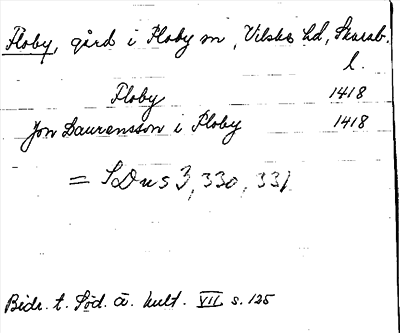 Floby, gård i Floby sn, Vilske hd, Skarab.
l.
Floby 1418
Jon Laurensson i Floby 1418
= SDns 3, 330, 331
Bidr. t. Söd. ä. kult. VII s. 125